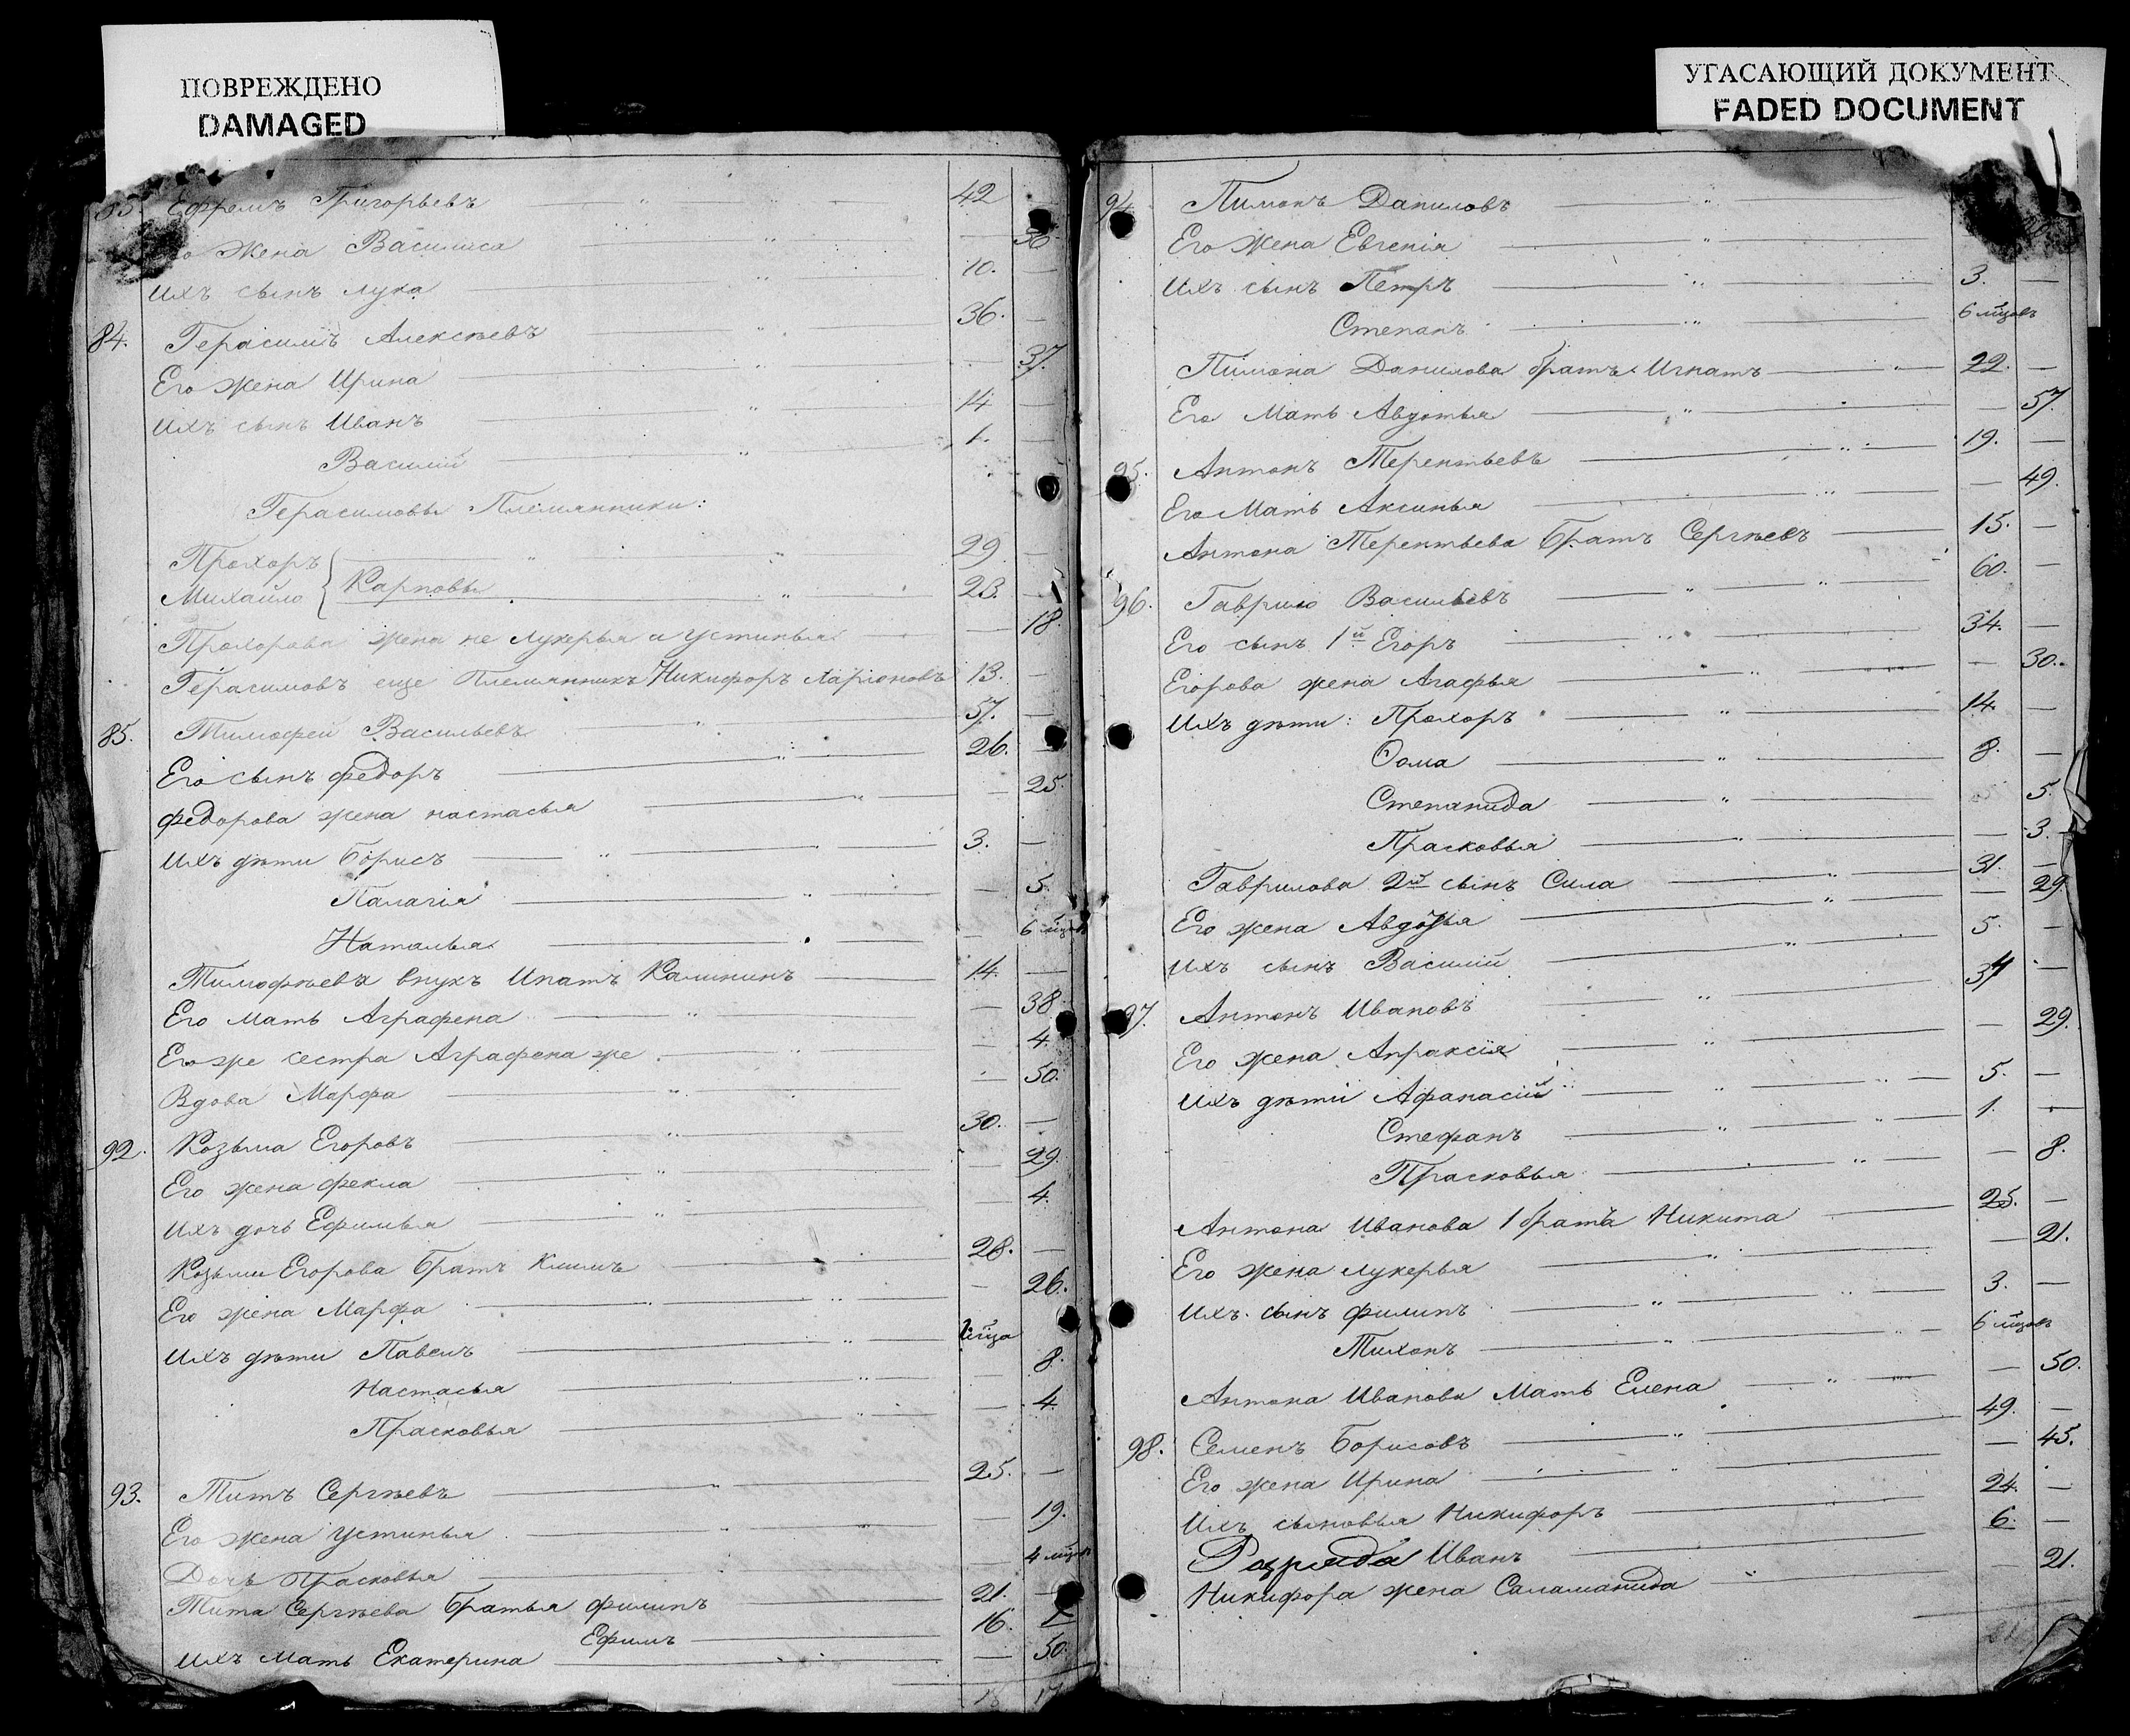 ПОВРЕЖДЕНО
DAMAGED
Ефремъ Григорьевъ — 42
Жена Василиса — 36
Ихъ сынъ Лука — 10. —
84. Герасимъ Алексѣевъ — 36. —
Его жена Ирина — 37.
Ихъ сынъ Иванъ — 14 —
Василій — 1. —
Герасимовы Племянники:
Прохоръ — 29 —
Михайло } Карповы — 23. —
Прохорова жена не Лукерья а Устинья — 18.
Герасимовъ еще Племянникъ Никифоръ Ларіоновъ 13. —
85. Тимофей Васильевъ — 57. —
Его сынъ Федоръ — 26. —
Федорова жена Настасья — 25.
Ихъ дѣти Борисъ — 3. —
Палагія — 5.
Наталья — 6 мѣцов
Тимофѣева внукъ Ипатъ Калининъ — 14. —
Его мать Аграфена — 38
Его же сестра Аграфена же — 4.
Вдова Марфа — 50.
92. Козьма Егоровъ — 30. —
Его жена Фекла — 29.
Ихъ дочь Ефимья — 4.
Козьмы Егорова братъ Климъ — 28. —
Его жена Марфа — 26.
Ихъ дѣти Павелъ —
Настасья — 8.
Прасковья — 4
93. Титъ Сергѣевъ — 25. —
Его жена Устинья — 19.
Дочь Прасковья — 4 мѣцов
Тита Сергѣева братья Филипъ — 21. —
Ефимъ — 16.
Ихъ Мать Екатерина — 50.
УГАСАЮЩИЙ ДОКУМЕНТ
FADED DOCUMENT
94. Пимонъ Даниловъ —
Его жена Евгенія —
Ихъ сынъ Петръ — 3. —
Степанъ — 6 мѣцовъ
Пимона Данилова братъ Игнатъ — 22. —
Его Мать Авдотья — 57.
95. Антонъ Терентьевъ — 19. —
Его Мать Аксинья — 49.
Антона Терентьева братъ Сергѣевъ — 15. —
96. Гаврило Васильевъ — 60. —
Его сынъ 1й Егоръ — 34. —
Егорова жена Агафья — 30.
Ихъ дѣти: Прохоръ — 14. —
Ѳома — 8. —
Степанида — 5.
Прасковья — 3.
Гаврилова 2й сынъ Сила — 31. —
Его жена Авдотья — 29.
Ихъ сынъ Василій — 5. —
97. Антонъ Ивановъ — 34 —
Его жена Апраксія — 29.
Ихъ дѣти Афанасій — 5. —
Стефанъ — 1. —
Прасковья — 8.
Антона Иванова 1 брата Никита — 25. —
Его жена Лукерья — 21.
Ихъ сынъ Филипъ — 3. —
Тихонъ — 6 мѣцовъ
Антона Иванова Мать Елена — 50.
98. Семенъ Борисовъ — 49. —
Его жена Ирина — 45.
Ихъ сыновья Никифоръ — 24. —
Иванъ — 6. —
Никифора жена Саламанида — 21.